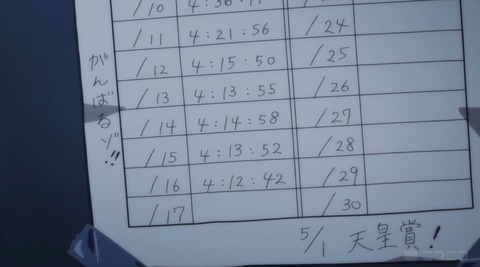 がんばるゾ!!
/10 4:36:11
/11 4:21:56 /24
/12 4:15:50 /25
/13 4:13:55 /26
/14 4:14:58 /27
/15 4:13:52 /28
/16 4:12:42 /29
/17 /30
5/1 天皇賞!